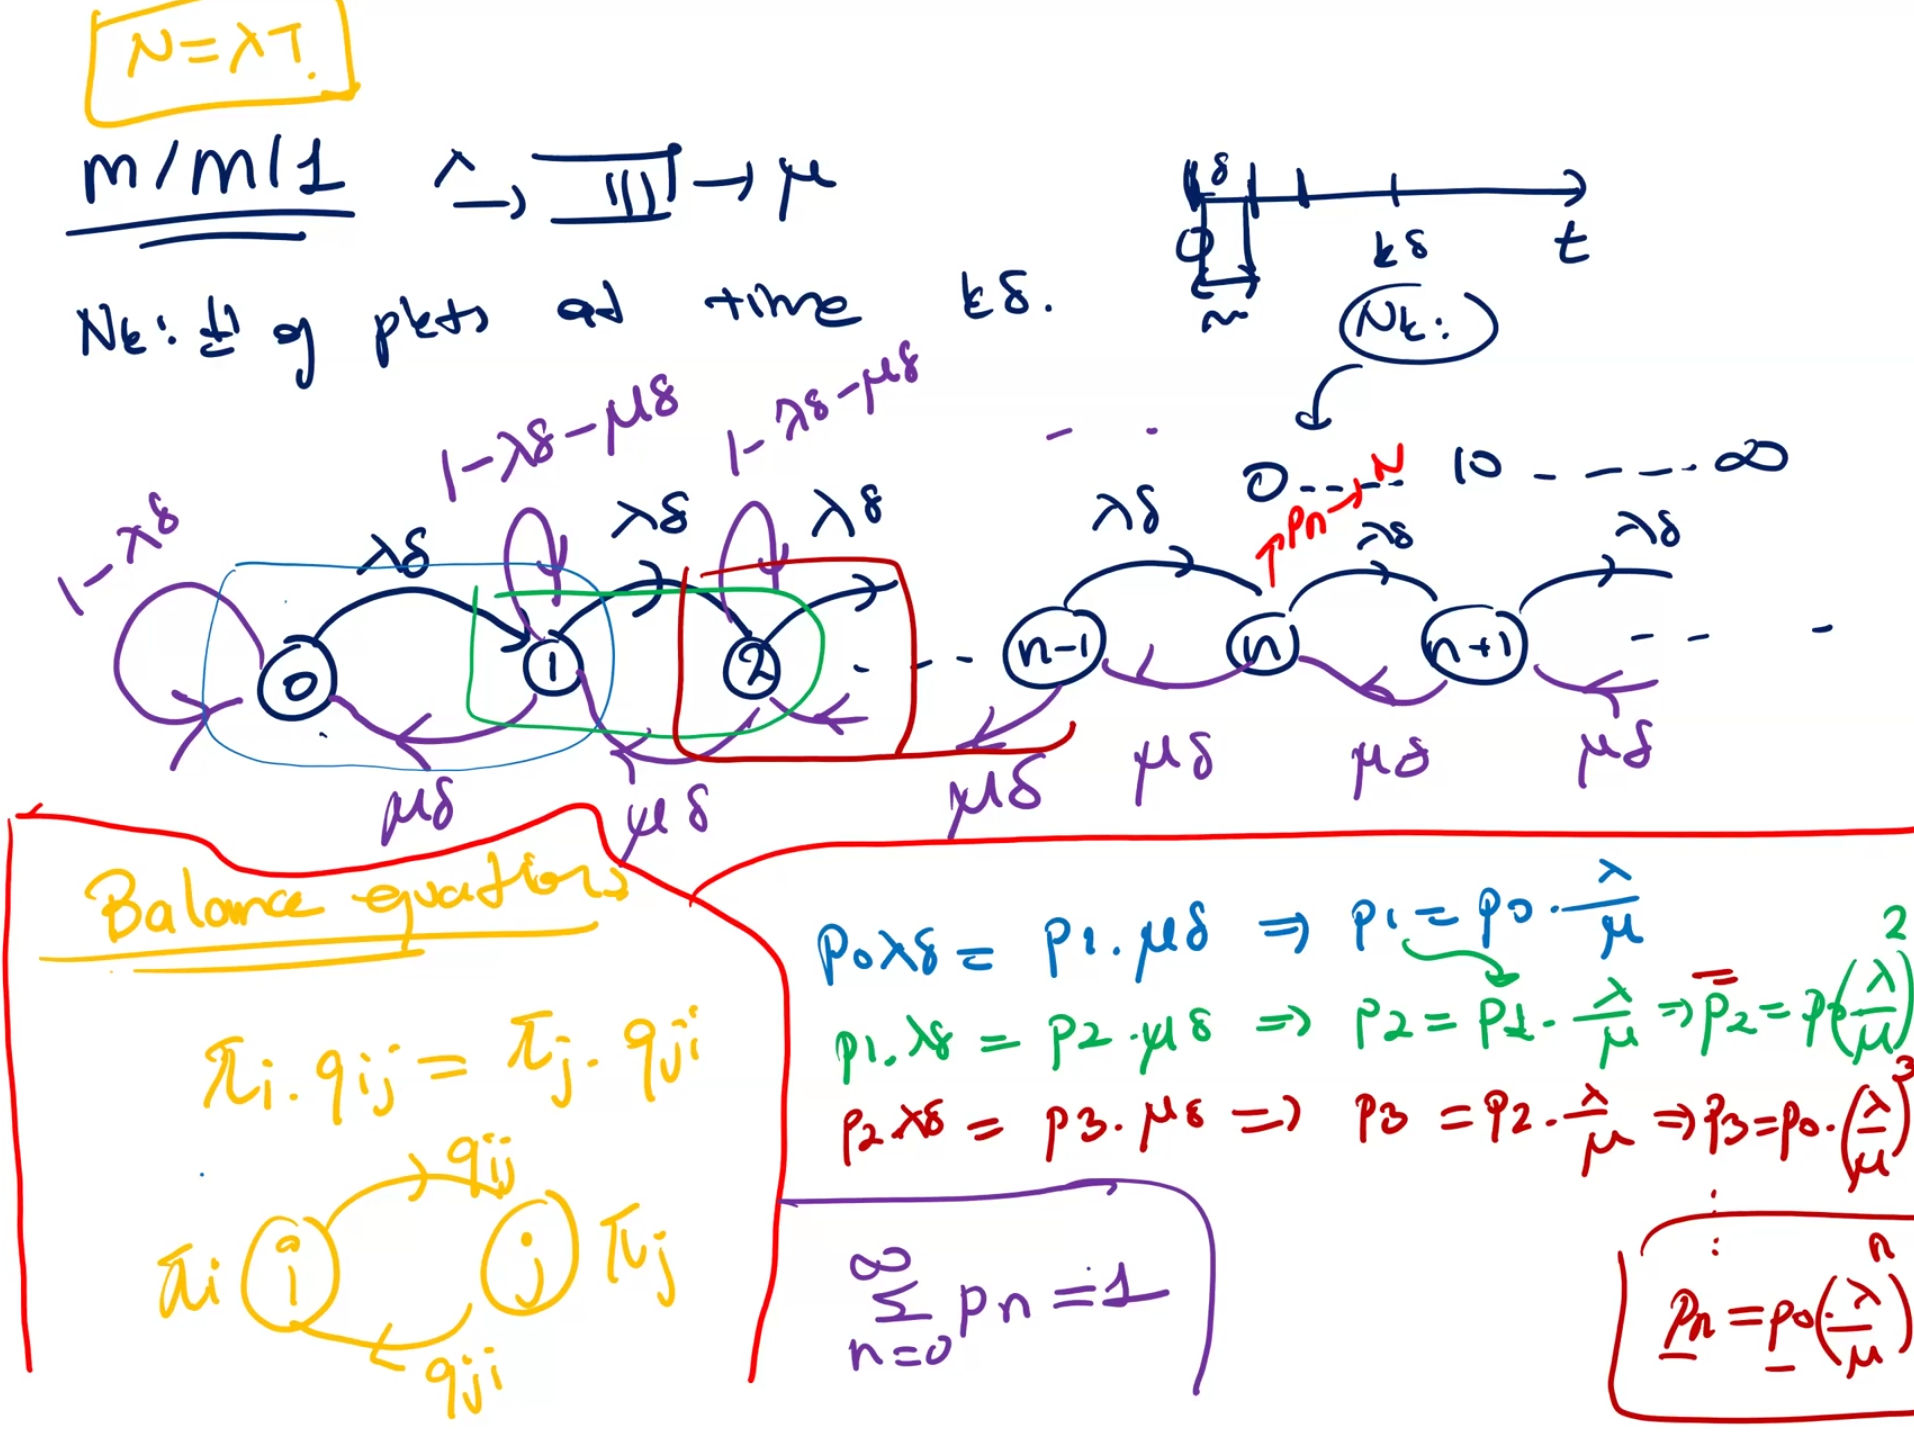 N=λT.
m/m/1 λ → → μ
δ
0 kδ t
Nk: # of pkts at time kδ.
Nk:
0 ---- N 10 - - - - ∞
pn
1-λδ λδ 1-λδ-μδ λδ 1-λδ-μδ λδ - - λδ λδ λδ
0 1 2 - - - n-1 n n+1 - - -
μδ μδ μδ μδ μδ μδ
Balance equations
πi.qij = πj.qji
qij
πi i j πj
qji
p0λδ = p1.μδ ⇒ p1 = p0.λ/μ
p1.λδ = p2.μδ ⇒ p2 = p1.λ/μ ⇒ p2 = p0(λ/μ)²
p2λδ = p3.μδ ⇒ p3 = p2.λ/μ ⇒ p3=p0.(λ/μ)³
:
∞
Σ pn = 1
n=0
pn = p0(λ/μ)ⁿ